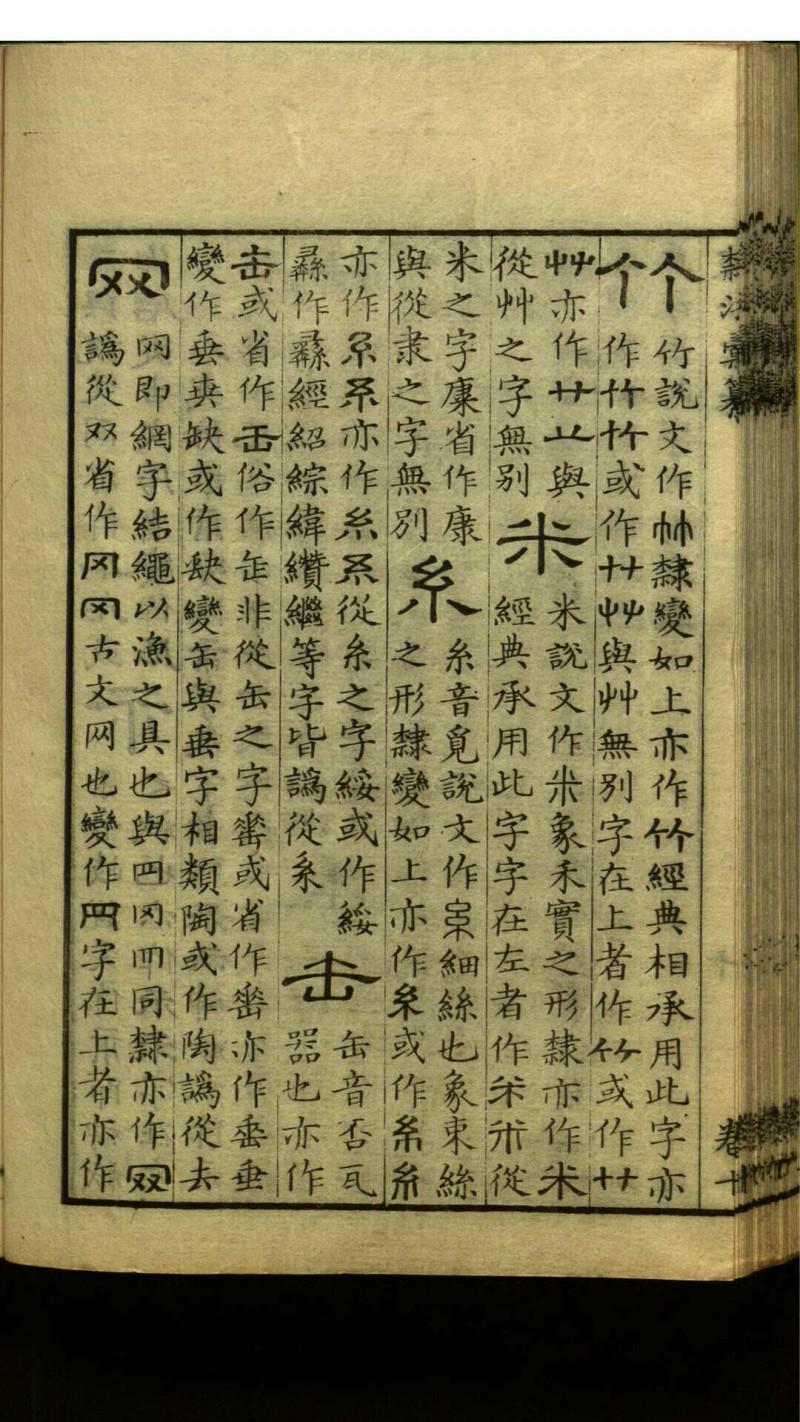 隸法彙纂 卷十
竹說文作𥫗隸變如上亦作竹經典相承用此字亦
作竹竹或作艹艸與艸無別字在上者作𥫗或作艹
艸亦作艹䒑與
從艸之字無別
米
米說文作米象禾實之形隸亦作米
經典承用此字字在左者作米从從
米之字康省作康
與從隶之字無別
糸
糸音覓說文作糸細絲也象束絲
之形隸變如上亦作糸或作糸糸
亦作糸糸亦作糸糸從糸之字綏或作綏
繇作繇經紹綜緯纘繼等字皆譌從糸
缶
缶音否瓦
器也亦作
缶或省作缶俗作缶非從缶之字罃或省作罃亦作垂垂
變作垂缺或作缺變缶與垂字相類陶或作陶譌從去
网
网即網字結繩以漁之具也與四冈罒同隸亦作网
譌從双省作冈冈古文网也變作罒字在上者亦作